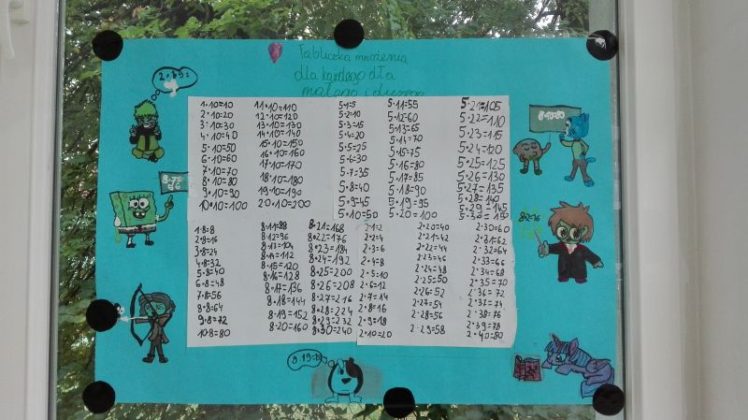 Tabliczka mnożenia
dla każdego dla
małego i dużego
1·10=10
2·10=20
3·10=30
4·10=40
5·10=50
6·10=60
7·10=70
8·10=80
9·10=90
10·10=100
11·10=110
12·10=120
13·10=130
14·10=140
15·10=150
16·10=160
17·10=170
18·10=180
19·10=190
20·10=200
5·1=5
5·2=10
5·3=15
5·4=20
5·5=25
5·6=30
5·7=35
5·8=40
5·9=45
5·10=50
5·11=55
5·12=60
5·13=65
5·14=70
5·15=75
5·16=80
5·17=85
5·18=90
5·19=95
5·20=100
5·21=105
5·22=110
5·23=115
5·24=120
5·25=125
5·26=130
5·27=135
5·28=140
5·29=145
5·30=150
1·8=8
2·8=16
3·8=24
4·8=32
5·8=40
6·8=48
7·8=56
8·8=64
9·8=72
10·8=80
8·11=88
8·12=96
8·13=104
8·14=112
8·15=120
8·16=128
8·17=136
8·18=144
8·19=152
8·20=160
8·21=168
8·22=176
8·23=184
8·24=192
8·25=200
8·26=208
8·27=216
8·28=224
8·29=232
8·30=240
2·1=2
2·2=4
2·3=6
2·4=8
2·5=10
2·6=12
2·7=14
2·8=16
2·9=18
2·10=20
2·20=40
2·21=42
2·22=44
2·23=46
2·24=48
2·25=50
2·26=52
2·27=54
2·28=56
2·29=58
2·30=60
2·31=62
2·32=64
2·33=66
2·34=68
2·35=70
2·36=72
2·38=76
2·39=78
2·40=80
8·2=16